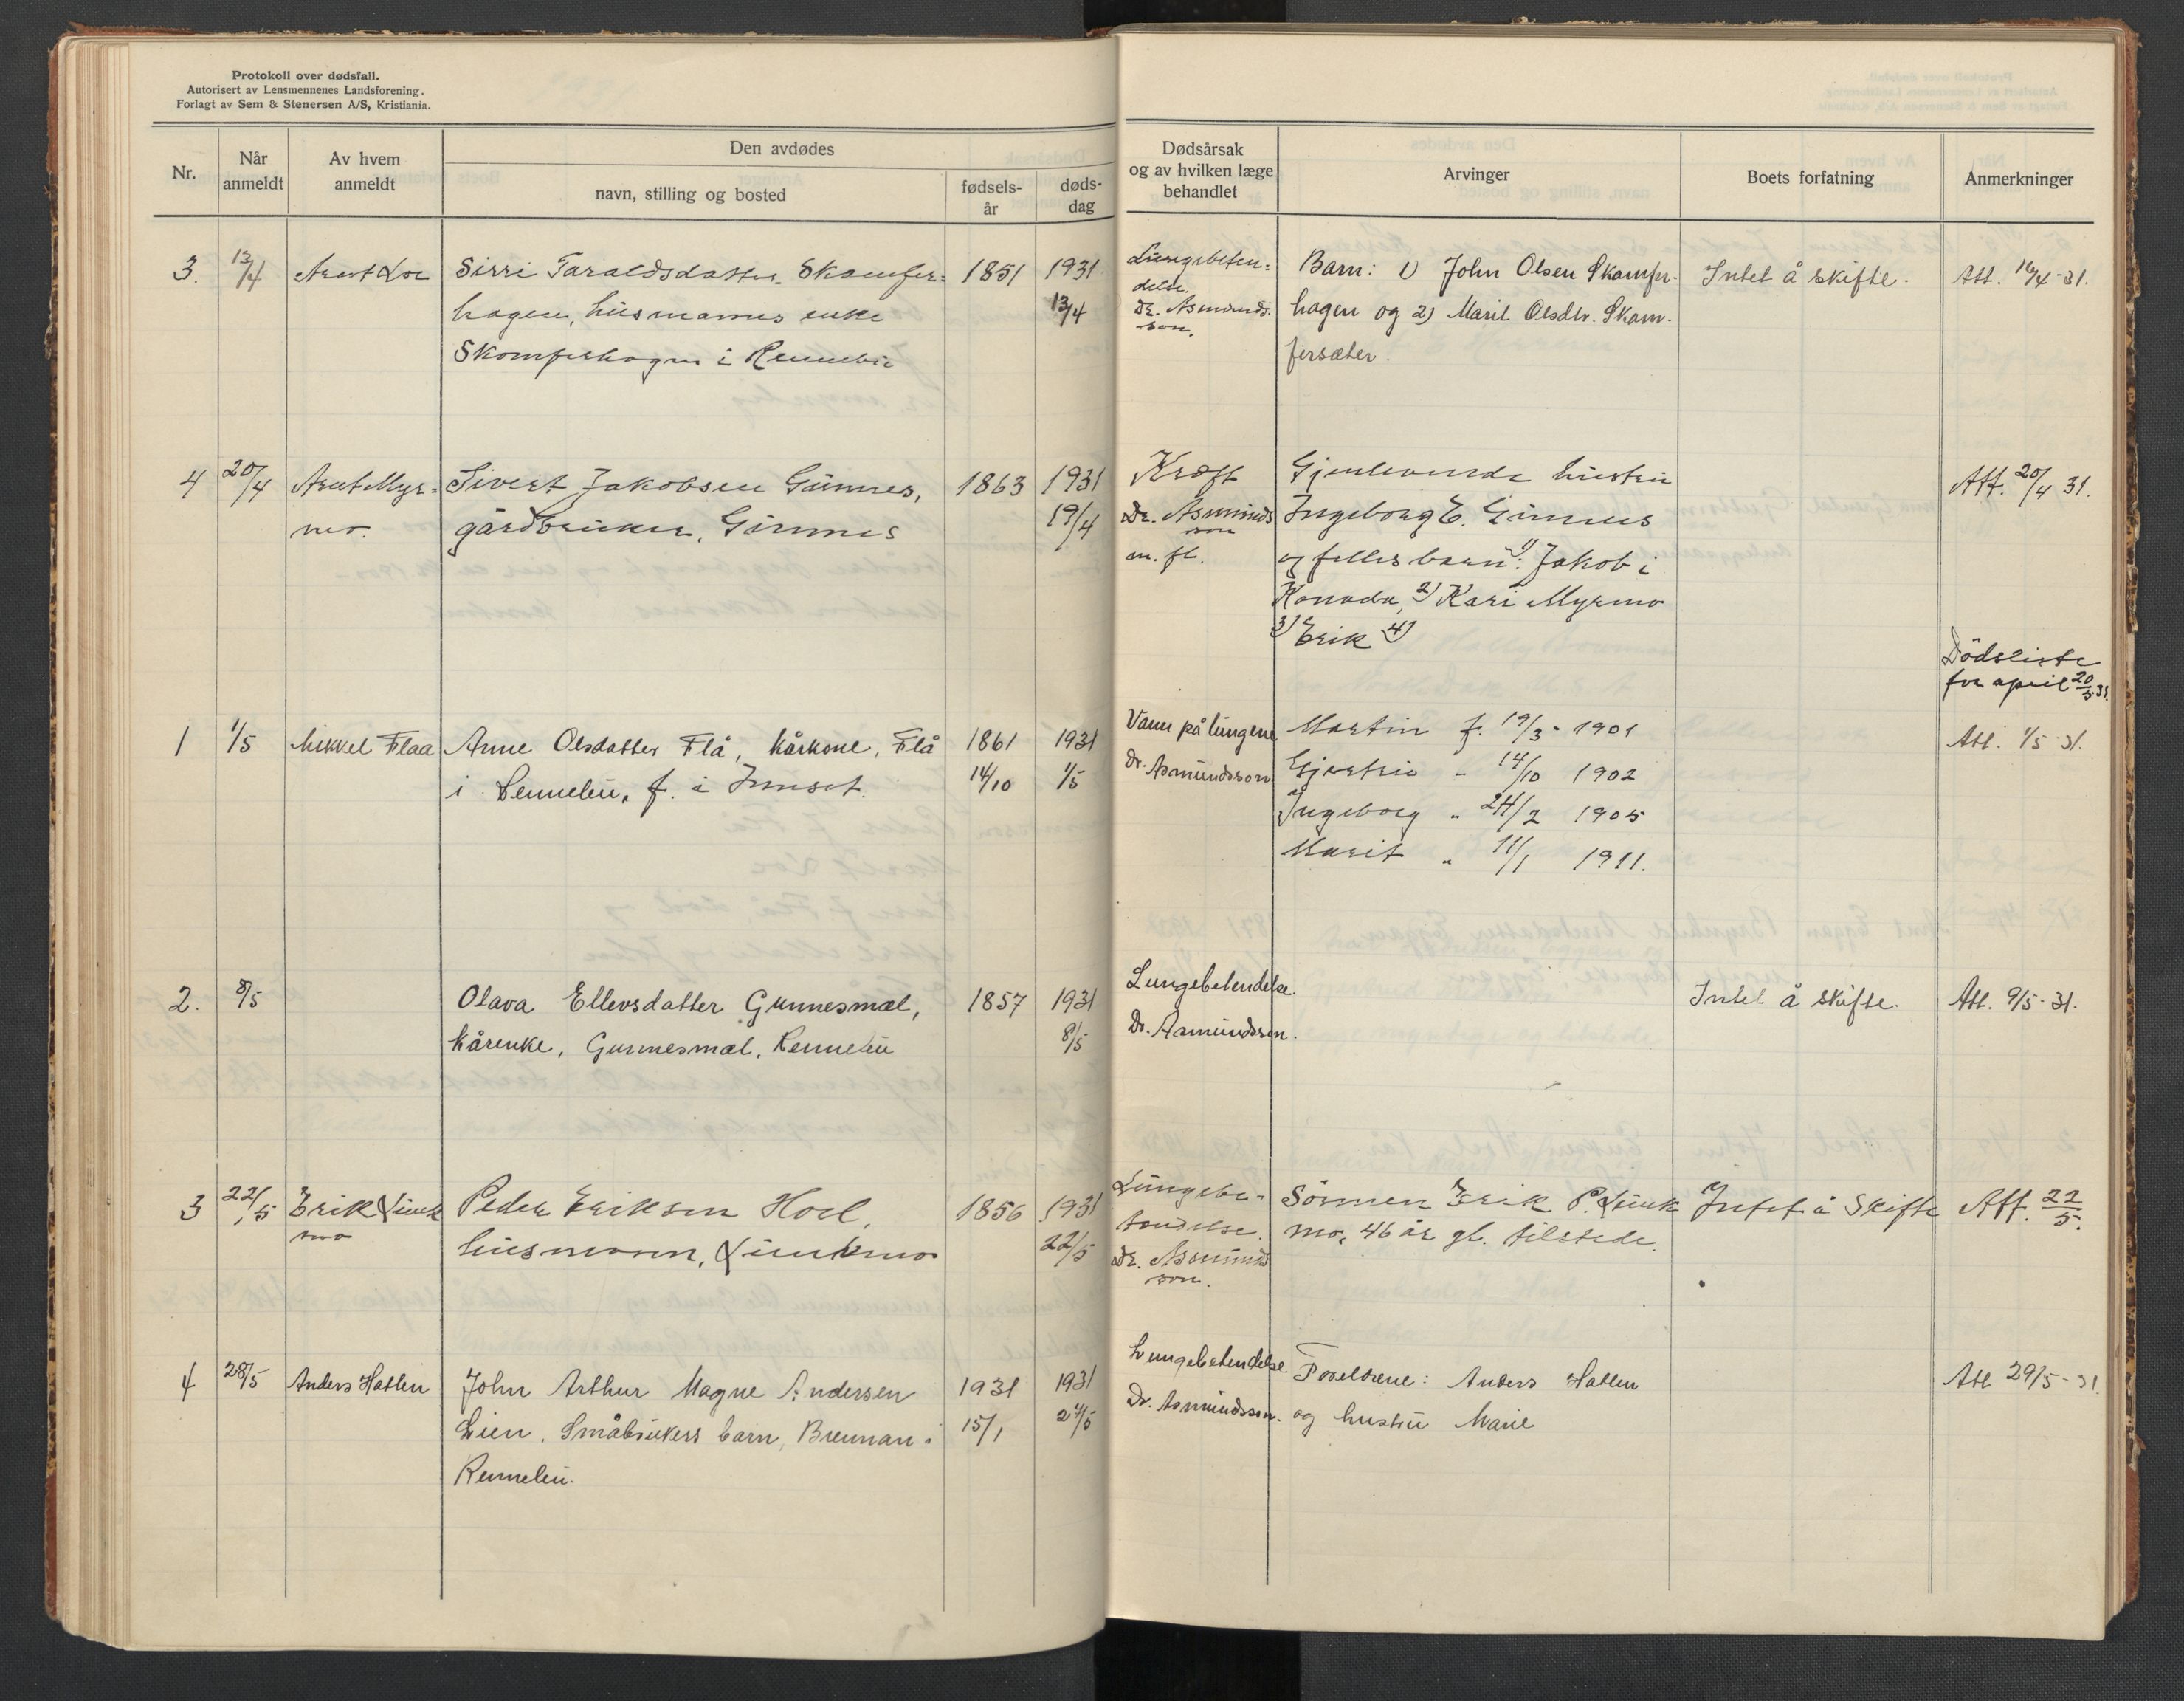 Protokoll over dødsfall.
Autorisert av Lensmennenes Landsforening.
Forlagt av Sem & Stenersen A/S, Kristiania.
Nr.
Når
anmeldt
Av hvem
anmeldt
Den avdødes
navn, stilling og bosted
fødsels-
år
døds-
dag
Dødsårsak
og av hvilken læge
behandlet
Arvinger
Boets forfatning
Anmerkninger
3.
13/4
Arnt Loe
Sirri Taraldsdatter Skamfer=
hagen, husmanns enke
Skamferhagen i Rennebu
1851
1931
13/4
Lungebeten=
delse.
Dr. Asmunds-
son.
Barn: 1) John Olsen Skamfer-
hagen og 2) Marit Olsdtr. Skam-
fersæter.
Intet å skifte.
Att. 16/4-31.
4
20/4
Arnt Myr=
mo.
Sivert Jakobsen Gunnes,
gårdbruker, Gunnes
1863
1931
19/4
Kræft
Dr. Asmunds
son
m. fl.
Gjenlevende hustru
Ingeborg E. Gunnes
og felles barn: 1) Jakob i
Kanada, 2) Kari Myrmo
3) Erik 4)
Att. 20/4 31.
Dödsliste
for april 20/5 31.
1
1/5
Mikkel Flaa
Anne Olsdatter Flå, kårkone, Flå
i Rennebu, f. i Innset.
1861
14/10
1931
1/5
Vann på lungene
Dr. Asmundsson
Martin f. 19/3 - 1901
Gjertru " 14/10 1902
Ingeborg " 24/2 1905
Marit " 11/1 1911.
Att. 1/5-31.
2.
8/5
Olava Ellevsdatter Gunnesmæl,
kårenke, Gunnesmæl, Rennebu
1857
1931
8/5
Lungebetendelse.
Dr. Asmundsson.
Intet å skifte.
Att. 9/5-31.
3
22/5
Erik Lienk
mo
Peder Eriksen Hoel,
husmann,
1856
1931
22/5
Lungebe-
tendelse.
Dr. Asmunds
son.
Sönnen Erik P.
mo, 46 år gl. tilstede.
Intet å skifte
Att. 22/5.
4
28/5
Anders Hatlen
John Arthur Magne Andersen
Lien, Småbrukers barn, Brennan i
Rennebu.
1931
15/1
1931
27/5
Lungebetendelse.
Dr. Asmundsson.
Foreldrene: Anders Hatlen
og hustru Marie
Att 29/5-31.